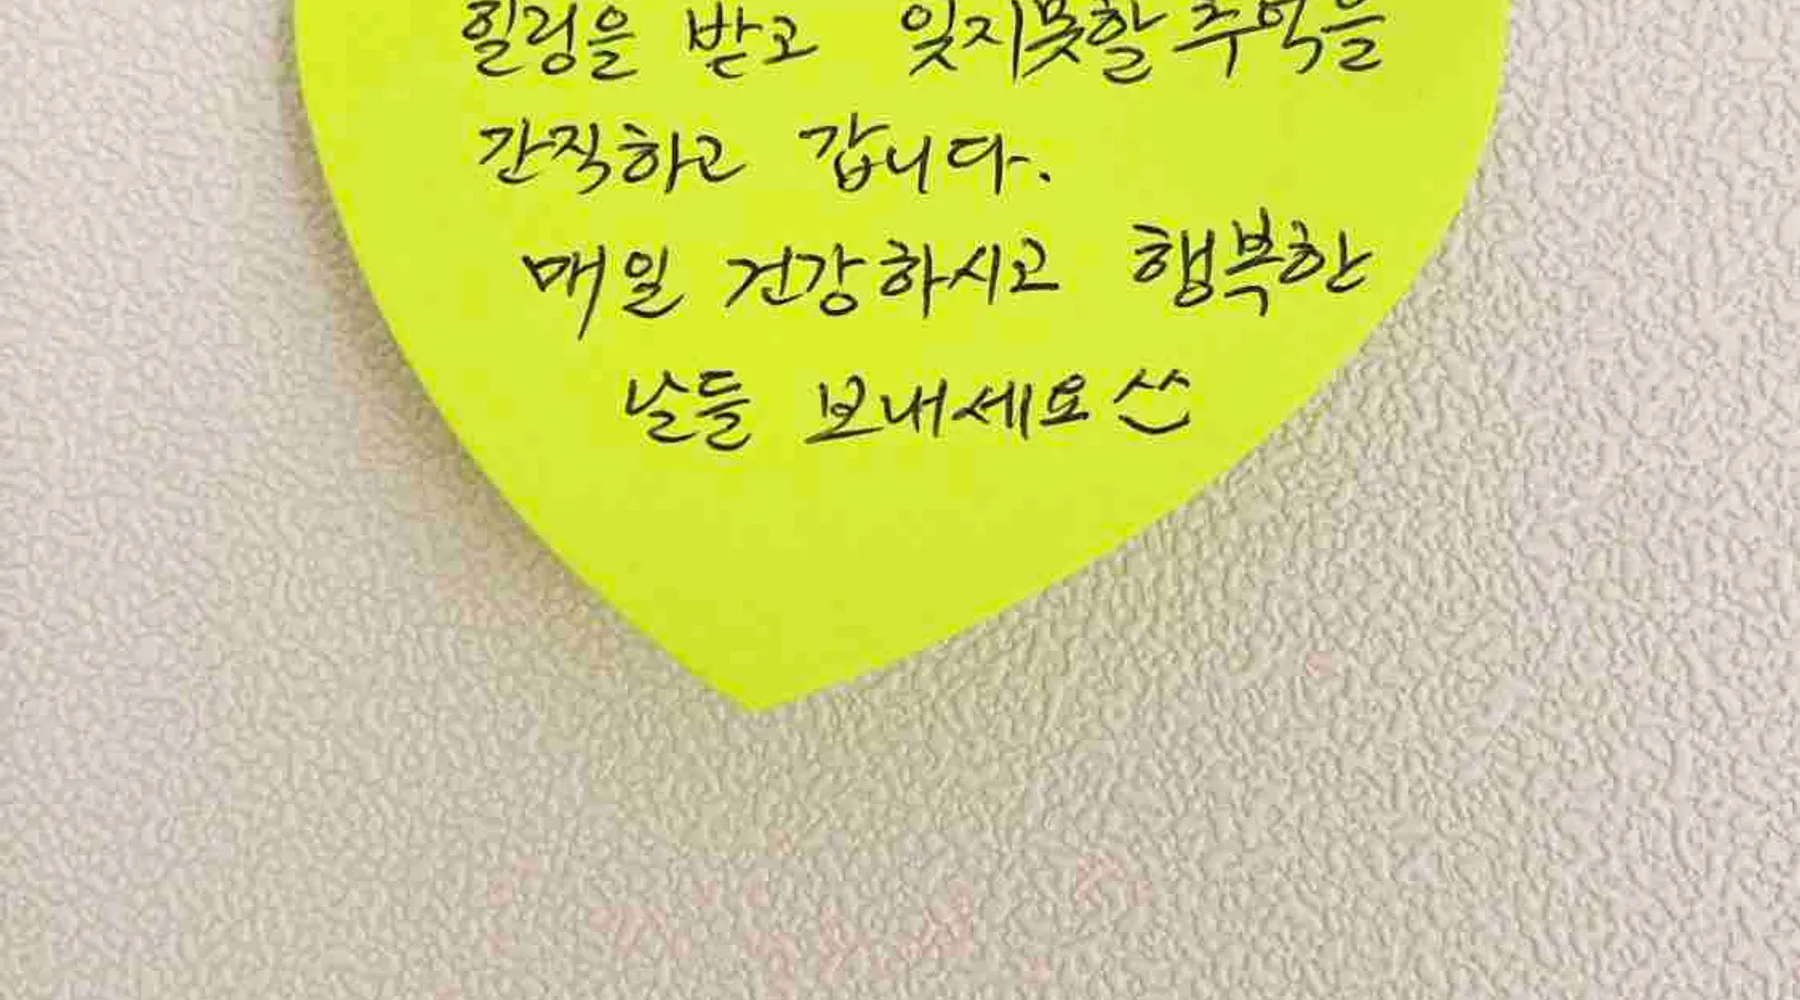 힐링을 받고 잊지못할 추억을
간직하고 갑니다.
매일 건강하시고 행복한
날들 보내세요^^